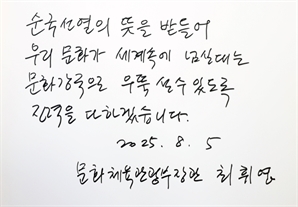 순국선열의 뜻을 받들어
우리 문화가 세계속에 넘실대는
문화강국으로 우뚝 설수 있도록
진력을 다하겠습니다.
2025. 8. 5
문화체육관광부장관 최휘영